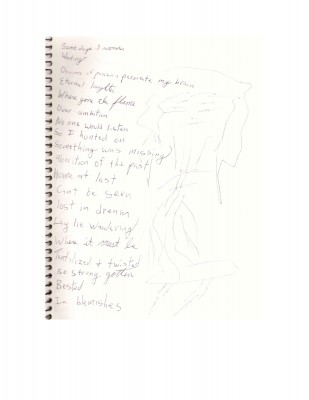 Some days I wonder
What
Dreams of passion penetrate my brain
Eternal
Where gone the flame
Over ambition
No one would listen
So I hunted on
Something was missing
of the past
Home at last
Can't be seen
lost in dream
lie wandering
Where it must be
& twisted
so strong gotten
Bested
In blemishes